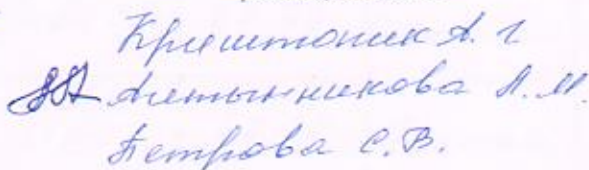 Криштопик А. г
Алтынникова А. М.
Петрова С. В.